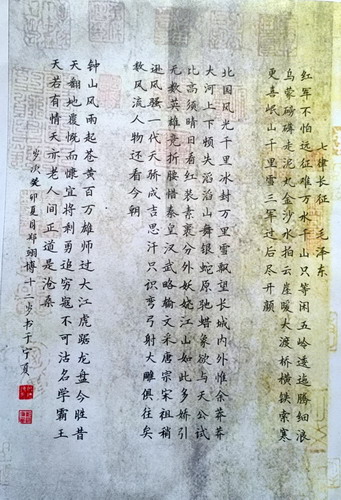 七律长征 毛泽东
红军不怕远征难万水千山只等闲五岭逶迤腾细浪
乌蒙磅礴走泥丸金沙水拍云崖暖大渡桥横铁索寒
更喜岷山千里雪三军过后尽开颜
北国风光千里冰封万里雪飘望长城内外惟余莽莽
大河上下顿失滔滔山舞银蛇原驰蜡象欲与天公试
比高须晴日看红装素裹分外妖娆江山如此多娇引
无数英雄竞折腰惜秦皇汉武略输文采唐宗宋祖稍
逊风骚一代天骄成吉思汗只识弯弓射大雕俱往矣
数风流人物还看今朝
钟山风雨起苍黄百万雄师过大江虎踞龙盘今胜昔
天翻地覆慨而慷宜将剩勇追穷寇不可沽名学霸王
天若有情天亦老人间正道是沧桑
岁次癸卯夏月郑翊博十二岁书于宁夏